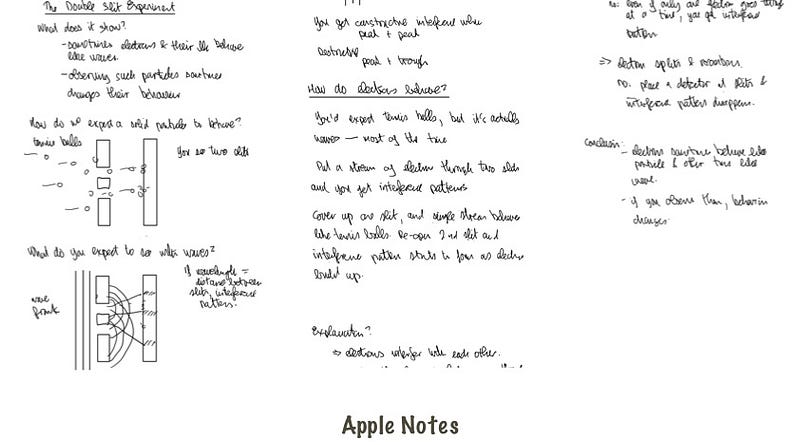 The Double Slit Experiment
What does it show?
- sometimes electrons & their ilk behave
like waves.
- observing such particles sometimes
changes their behaviour
How do we expect a solid particles to behave?
tennis balls
You see two slits
What do you expect to see with waves?
wave
front
If wavelength =
distance between
slits, interference
pattern.
You get constructive interference when
peak + peak
Destructive
peak + trough
How do electrons behave?
You'd expect tennis balls, but it's actually
waves — most of the time
Put a stream of electron through two slits
and you get interference patterns
Cover up one slit, and single stream behaves
like tennis balls. Re-open 2nd slit and
interference pattern starts to form as electrons
build up.
Explanation?
⇒ electrons interfer with each other.
no: even if only one electron goes through
at a time, you get interference
pattern
⇒ electron splits & recombines.
no. place a detector at slits &
interference pattern disappears.
Conclusion:
- electrons sometimes behave like
particle & other times like
wave.
- if you observe them, behavior
changes.
Apple Notes